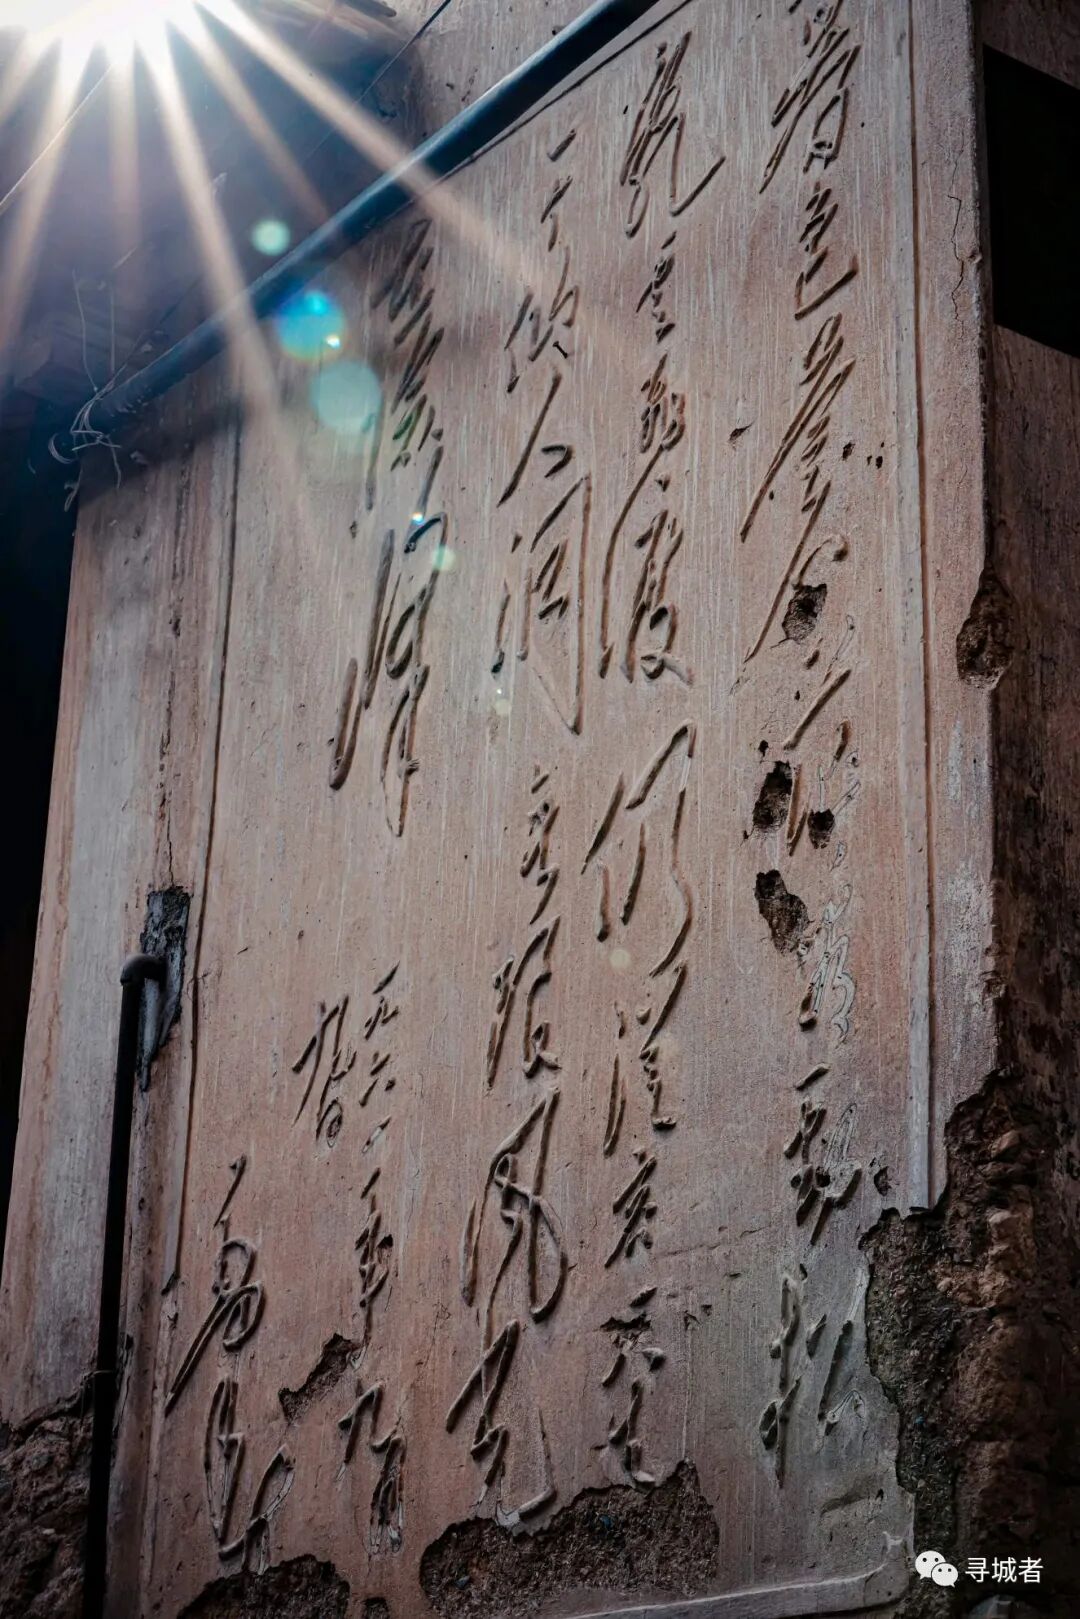 暮色苍茫看劲松
乱云飞渡仍从容天生
一个仙人洞无限风光
在险峰
九六一年九月
寻城者